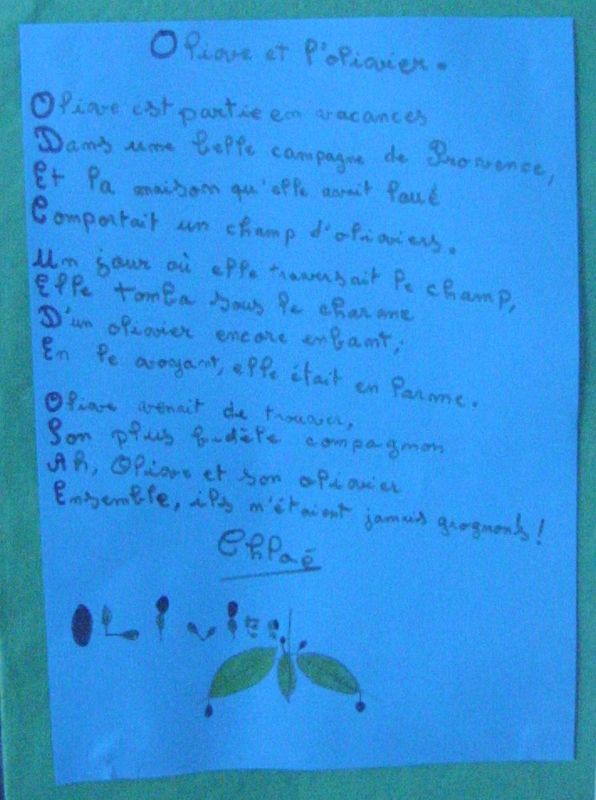 Olive et l'olivier.
Olive est partie en vacances
Dans une belle campagne de Provence,
Et la maison qu'elle avait loué
Comportait un champ d'oliviers.
Un jour où elle traversait le champ,
Elle tomba sous le charme
D'un olivier encore enfant;
En le voyant, elle était en larme.
Olive venait de trouver,
Son plus fidèle compagnon
Ah, Olive et son olivier
Ensemble, ils n'étaient jamais grognons!
Chloé
OLIVIER